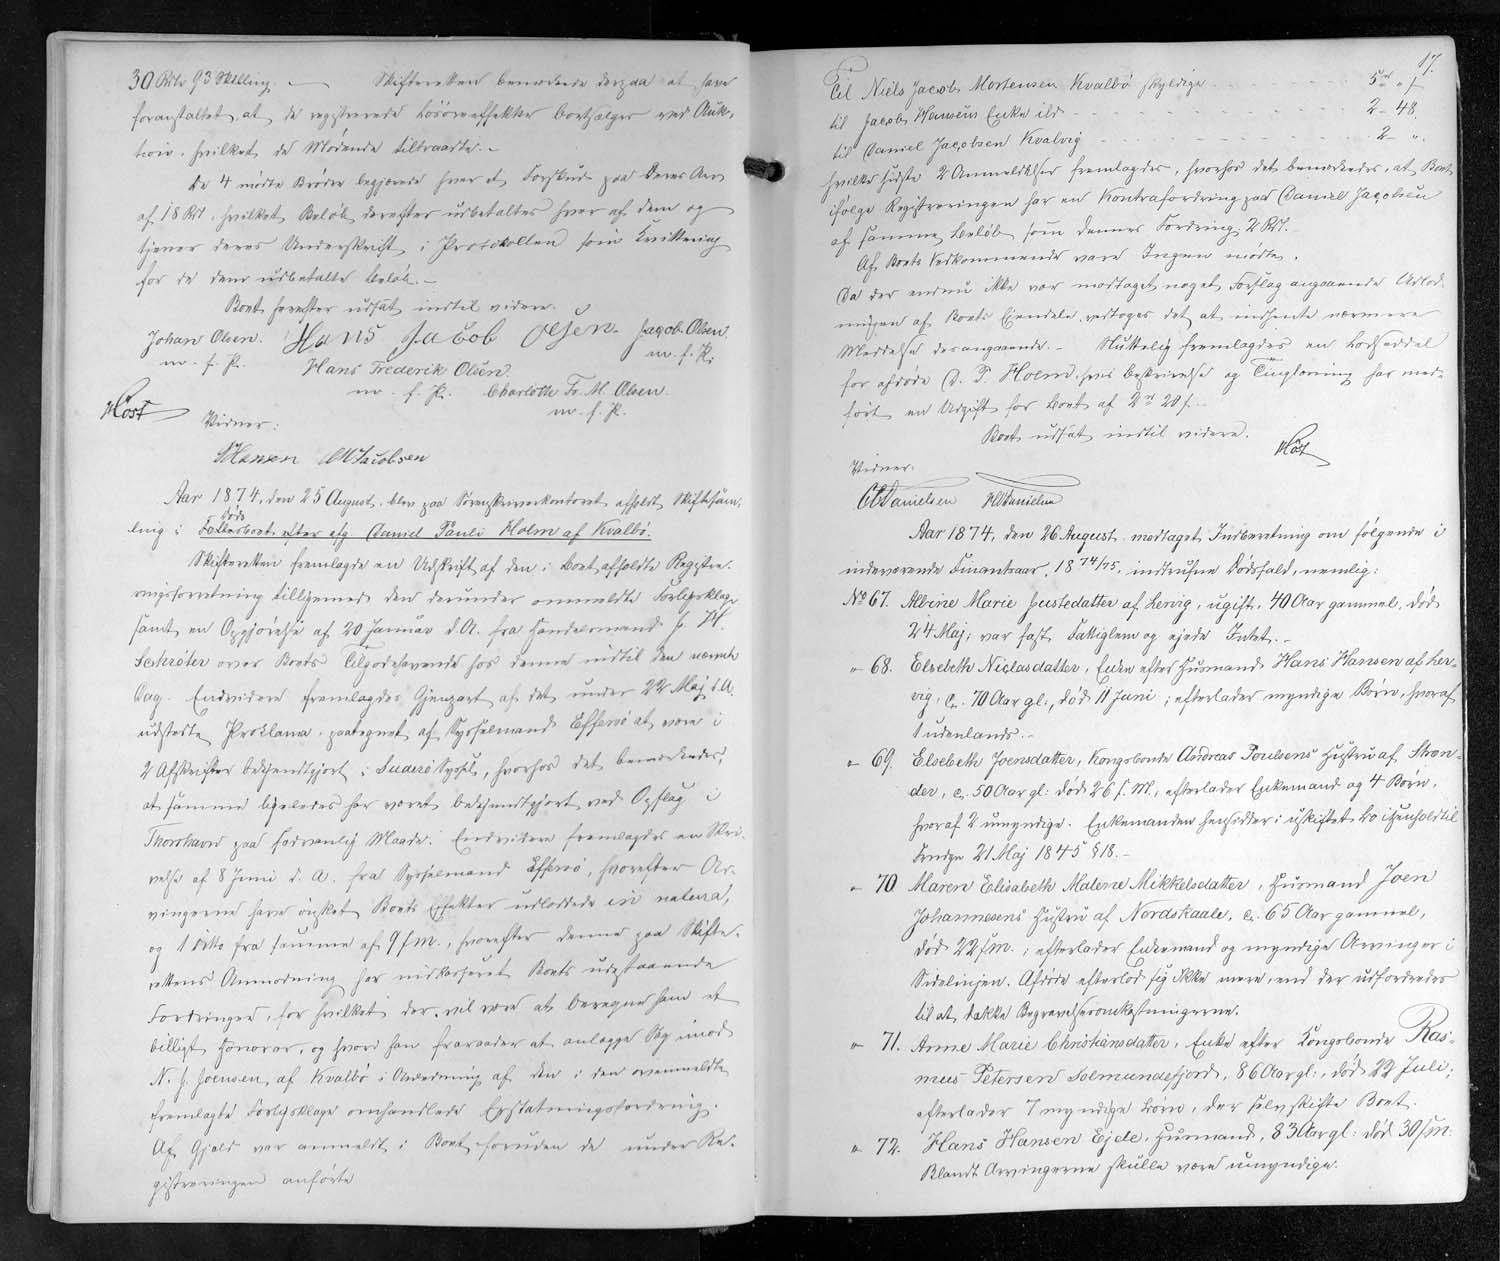 30 Rdlr 93 Skilling. — Skifteretten bemærkede derpaa at have
foranstaltet, at de registrerede Løsøreeffekter bortsælges ved Auk-
tion, hvilket de Mødende tiltraadte. –
De 4 mødte Brødre begjærede hver et Forskud paa deres Arv
af 18 Rd., hvilket Beløb derefter udbetaltes hver af dem og
tjener deres Underskrift i Protokollen som Kvittering
for de dem udbetalte Beløb. –
Boet herefter udsat indtil videre.
Johan Olsen. Hans Jacob Olsen. Jacob Olsen.
m. f. P. Hans Frederik Olsen. m. f. P.
m. f. P. Charlotte Fr. M. Olsen.
Høst m. f. P.
Vidner:
Hansen Jacobsen
Aar 1874, den 25 August, blev paa Sorenskriverkontoret afholdt Skiftesam-
ling i Fællesboet efter afg. Daniel Pauli Holm af Kvalbø.
døds
Skifteretten fremlagde en Udskrift af den i Boet afholdte Registre-
ringsforretning tilligemed den derunder ommeldte Forligsklage
samt en Opgjørelse af 20 Januar d. A. fra Handelsmand
Schrøter over Boets Tilgodehavende hos denne indtil den nævnte
Dag. Endvidere fremlagdes Gjenpart af det under 22 Maj d. A.
udstedte Proklama, paategnet af Sysselmand Effersø at være i
2 Afskrifter bekjendtgjort i Suderø Syssel, hvorhos det bemærkedes,
at samme ligeledes har været bekjendtgjort ved Opslag i
Thorshavn paa sædvanlig Maade. Endvidere fremlagdes en Skri-
velse af 8 Juni d. A. fra Sysselmand Effersø, hvorefter Ar-
vingerne have ønsket Boets Effekter udloddede in natura,
og 1 ditto fra samme af 9 s. M., hvorefter denne paa Skifte-
rettens Anmodning har indkasseret Boets udestaaende
Fordringer, for hvilket der vil være at beregne ham et
billigt Honorar, og hvori han fraraader at anlægge Sag imod
N. J. Joensen, af Kvalbø i Anledning af den i den ovenmeldte
fremlagte Forligsklage omhandlede Erstatningsfordring.
Af Gjæld var anmeldt i Boet foruden de under Re-
gistreringen anførte
17.
Til Niels Jacob Mortensen Kvalbø skyldige 5 rd „ s
til Jacob Hansens Enke ibd. 2 – 48.
til Daniel Jacobsen Kvalvig 2 – „.
hvilke sidste 2 Anmeldelser fremlagdes, hvorhos det bemærkedes, at Boet
ifølge Registreringen har en Kontrafordring paa Daniel Jacobsen
af samme Beløb som dennes Fordring: 2 Rd. –
Af Boets Vedkommende vare Ingen mødte.
Da der endnu ikke var modtaget noget Forslag angaaende Udlod-
ningen af Boets Ejendele, vedtoges det at indhente nærmere
Meddelelse desangaaende. – Sluttelig fremlagdes en
for afdøde D. P. Holm, hvis Beskrivelse og Tinglæsning har med-
ført en Udgift for Boet af 2 rd 20 s. –
Boet udsat indtil videre.
Høst
Vidner:
Danielsen Danielsen
Aar 1874, den 26 August, modtaget Indberetning om følgende i
indeværende Finantsaar, 1874/75, indtrufne Dødsfald, nemlig:
No 67. Albine Marie Justedatter af Lervig, ugift, 40 Aar gammel, død
24 Maj; var fast Fattiglem og ejede Intet. –
„ 68. Elsebeth Niclasdatter, Enke efter Husmand Hans Hansen af Ler-
vig, c. 70 Aar gl., død 11 Juni; efterlader myndige Børn, hvoraf
1 udenlands. –
„ 69. Elsebeth Joensdatter, Kongsbonde Andreas Poulsens Hustru af Stran-
der, c. 50 Aar gl: død 26 s. M., efterlader Enkemand og 4 Børn,
hvoraf 2 umyndige. Enkemanden hensidder i uskiftet Bo i Henhold til
Frndgn 21 Maj 1845 § 18. –
„ 70. Maren Elisabeth Malene Mikkelsdatter, Husmand Joen
Johannesens Hustru af Nordskaale, c. 65 Aar gammel,
død 22 s. M.; efterlader Enkemand og myndige Arvinger i
Sidelinjen. Afdøde efterlod sig ikke mere, end der udfordredes
til at dække Begravelsesomkostningerne.
„ 71. Anne Marie Christiansdatter, Enke efter Kongsbonde Ras-
mus Petersen Solmundefjord, 86 Aar gl:, død 22 Juli;
efterlader 7 myndige Børn, der selv skifte Boet.
„ 72. Hans Hansen Ejde, Husmand, 83 Aar gl: død 30 s. M.
Blandt Arvingerne skulle være umyndige.